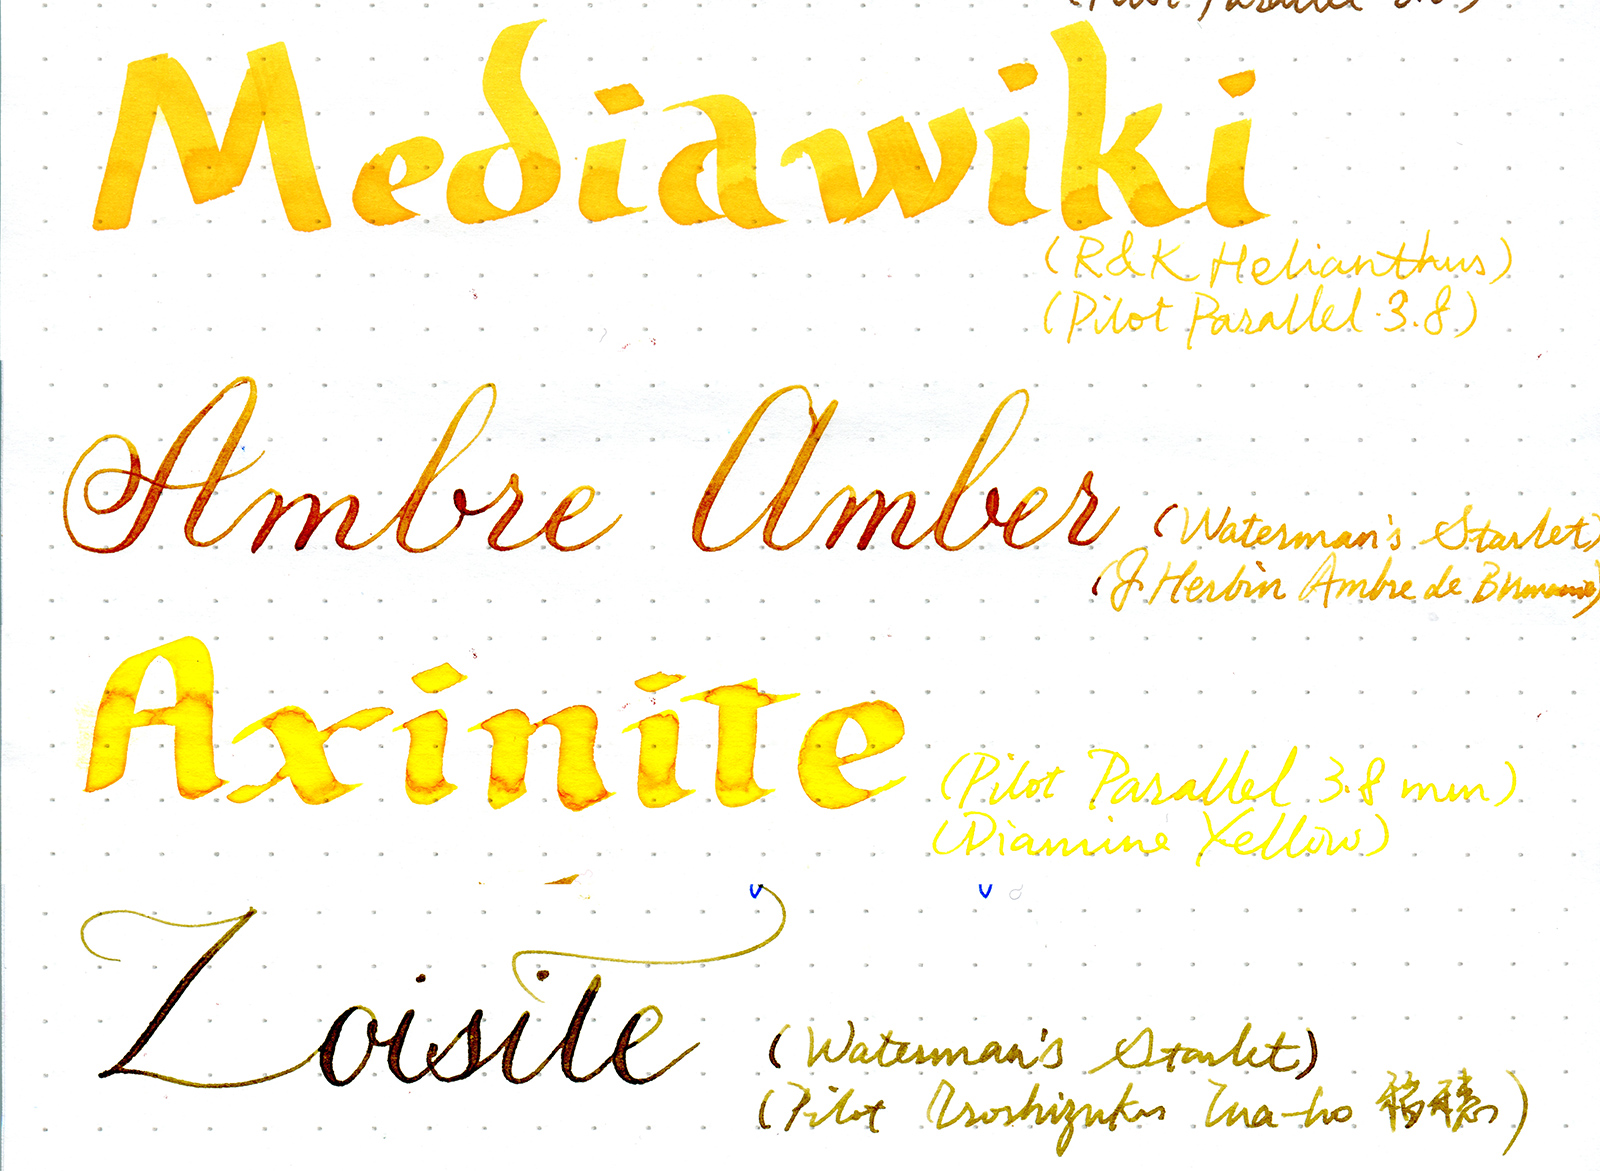 (Pilot Parallel 3.8)
Mediawiki
(R&K Helianthus)
(Pilot Parallel 3.8)
Ambre Amber (Waterman's Starlet)
(J Herbin Ambre de Birmanie)
Axinite (Pilot Parallel 3.8 mm)
(Diamine Yellow)
Zoisite (Waterman's Starlet)
(Pilot Iroshizuku Ina-ho 稲穂)